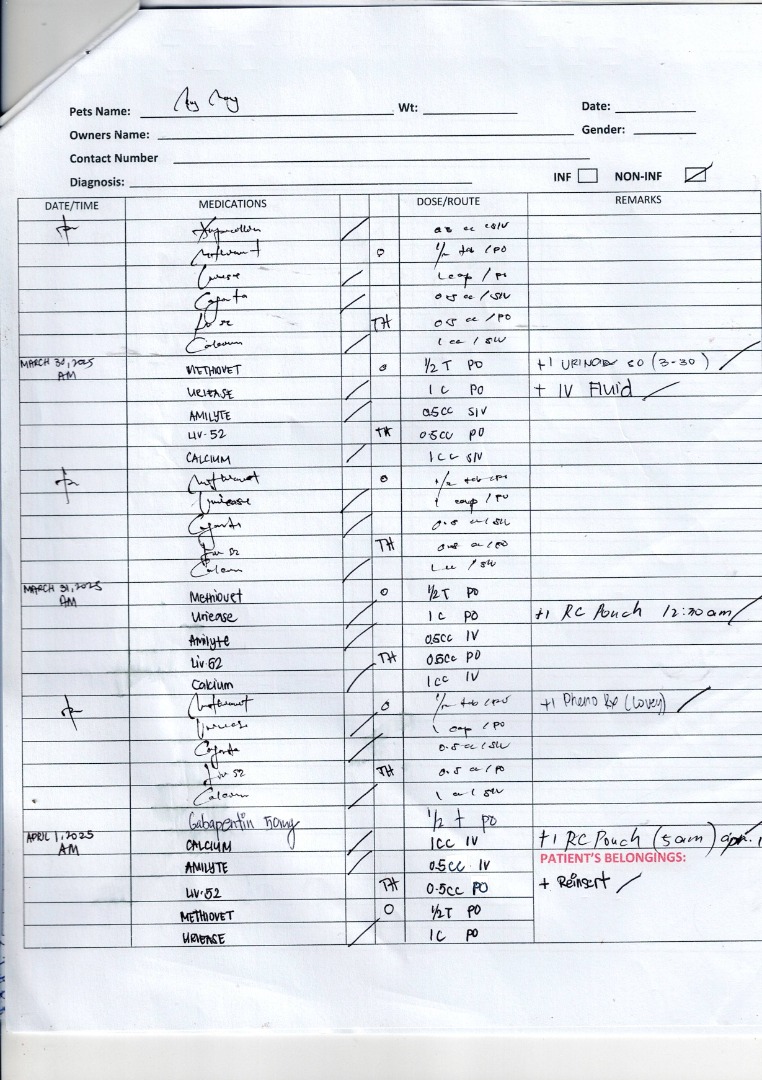 Pets Name: Wt: Date:
Owners Name: Gender:
Contact Number
Diagnosis: INF NON-INF
DATE/TIME MEDICATIONS DOSE/ROUTE REMARKS
1/2 tab / PO
1 cap / PO
0.5 cc / SIV
TH 0.5 cc / PO
Calcium 1 cc / SIV
MARCH 30, 2025 AM METHIOVET 0 1/2 T PO +1 URINOLEX 50 (3-30)
URIEASE 1 C PO + IV Fluid
AMILYTE 0.5CC SIV
LIV-52 TH 0.5CC PO
CALCIUM 1CC SIV
Methiovet 0 1/2 tab / PO
Uriease 1 cap / PO
0.5 cc / SIV
Liv 52 TH
Calcium 1 cc / SIV
MARCH 31, 2025 AM Methiovet 0 1/2 T PO
Uriease 1 C PO +1 RC Pouch 12:30am
Amilyte 0.5CC IV
Liv-52 TH 0.5CC PO
Calcium 1CC IV
Methiovet 0 1/2 tab / PO +1 Pheno Rx (Lovey)
1 cap / PO
0.5 cc / SIV
Liv 52 TH 0.5 cc / PO
Calcium 1 cc / SIV
Gabapentin 1/2 t PO
APRIL 1, 2025 AM CALCIUM 1CC IV +1 RC Pouch (5am) apr. 1
AMILYTE 0.5CC IV PATIENT'S BELONGINGS:
LIV-52 TH 0.5CC PO + Reinsert
METHIOVET O 1/2T PO
URIEASE 1C PO